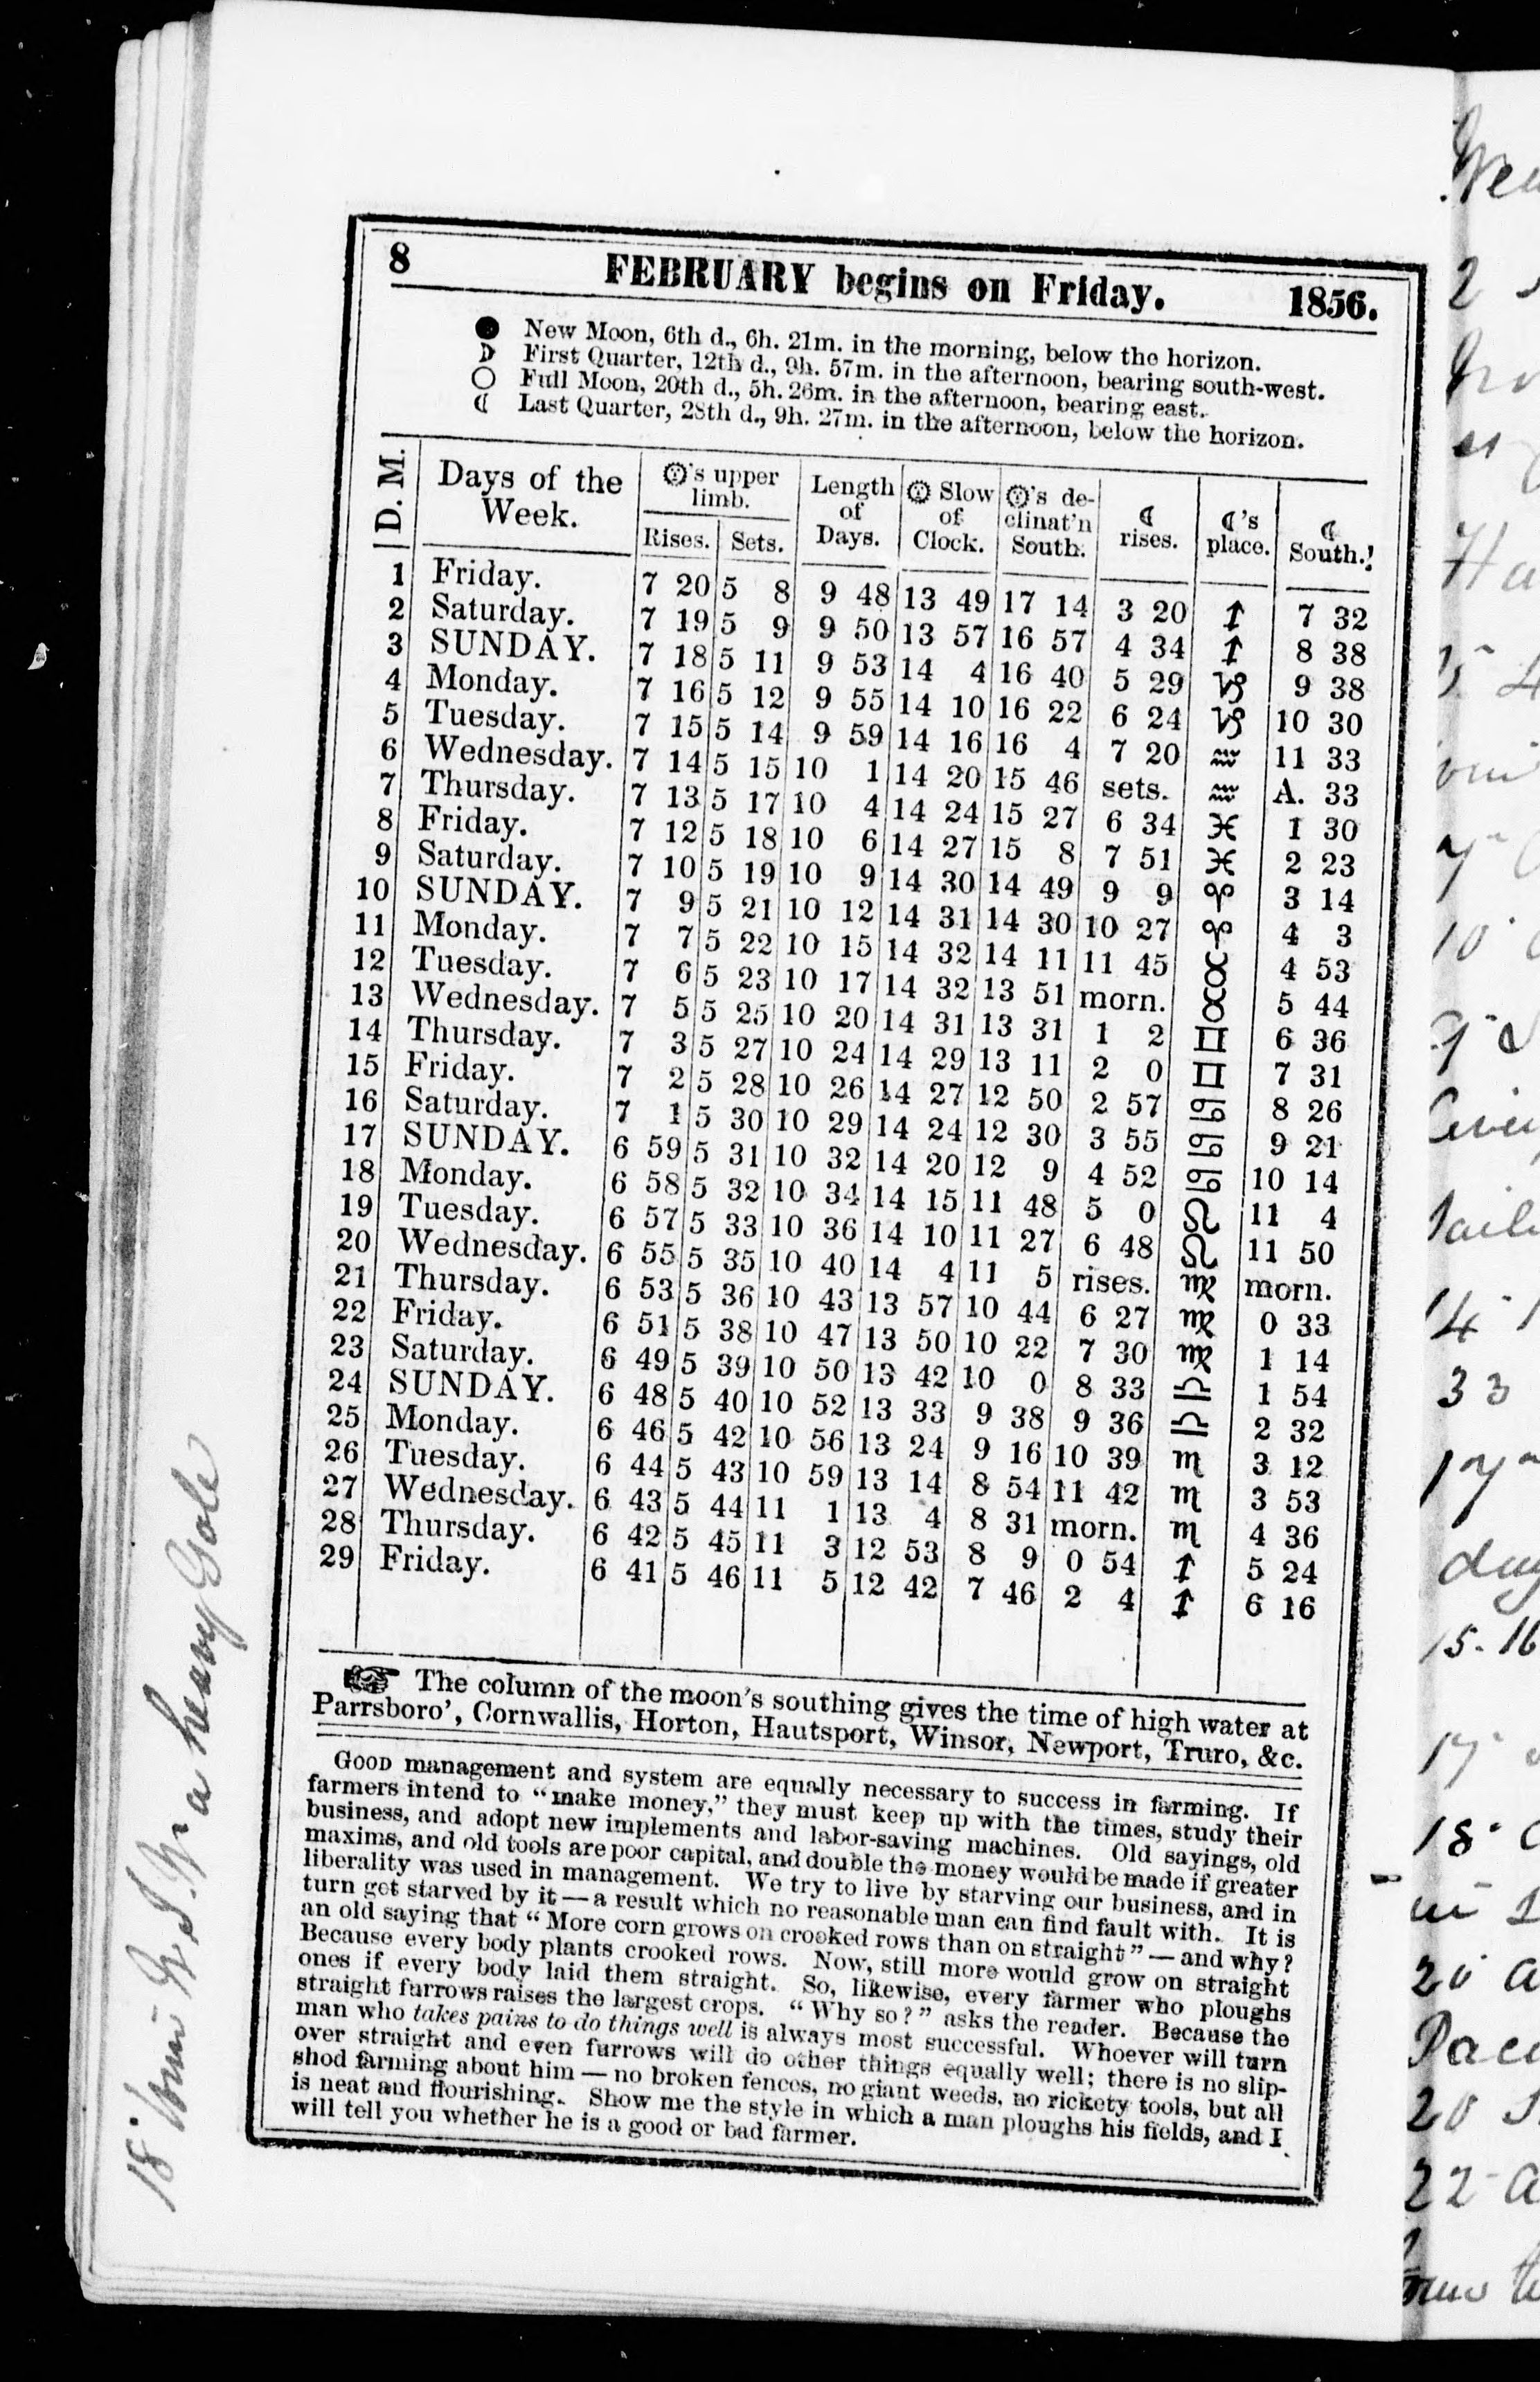 8 FEBRUARY begins on Friday. 1856.
● New Moon, 6th d., 6h. 21m. in the morning, below the horizon.
☽ First Quarter, 12th d., 9h. 57m. in the afternoon, bearing south-west.
○ Full Moon, 20th d., 5h. 26m. in the afternoon, bearing east.
☾ Last Quarter, 28th d., 9h. 27m. in the afternoon, below the horizon.
D. M. | Days of the Week. | ☉'s upper limb. Rises. | Sets. | Length of Days. | ☉ Slow of Clock. | ☉'s declinat'n South. | ☾ rises. | ☾'s place. | ☾ South.
1 Friday. 7 20 5 8 9 48 13 49 17 14 3 20 ♐ 7 32
2 Saturday. 7 19 5 9 9 50 13 57 16 57 4 34 ♐ 8 38
3 SUNDAY. 7 18 5 11 9 53 14 4 16 40 5 29 ♑ 9 38
4 Monday. 7 16 5 12 9 55 14 10 16 22 6 24 ♑ 10 30
5 Tuesday. 7 15 5 14 9 59 14 16 16 4 7 20 ♒ 11 33
6 Wednesday. 7 14 5 15 10 1 14 20 15 46 sets. ♒ A. 33
7 Thursday. 7 13 5 17 10 4 14 24 15 27 6 34 ♓ 1 30
8 Friday. 7 12 5 18 10 6 14 27 15 8 7 51 ♓ 2 23
9 Saturday. 7 10 5 19 10 9 14 30 14 49 9 9 ♈ 3 14
10 SUNDAY. 7 9 5 21 10 12 14 31 14 30 10 27 ♈ 4 3
11 Monday. 7 7 5 22 10 15 14 32 14 11 11 45 ♉ 4 53
12 Tuesday. 7 6 5 23 10 17 14 32 13 51 morn. ♉ 5 44
13 Wednesday. 7 5 5 25 10 20 14 31 13 31 1 2 ♊ 6 36
14 Thursday. 7 3 5 27 10 24 14 29 13 11 2 0 ♊ 7 31
15 Friday. 7 2 5 28 10 26 14 27 12 50 2 57 ♋ 8 26
16 Saturday. 7 1 5 30 10 29 14 24 12 30 3 55 ♋ 9 21
17 SUNDAY. 6 59 5 31 10 32 14 20 12 9 4 52 ♋ 10 14
18 Monday. 6 58 5 32 10 34 14 15 11 48 5 0 ♌ 11 4
19 Tuesday. 6 57 5 33 10 36 14 10 11 27 6 48 ♌ 11 50
20 Wednesday. 6 55 5 35 10 40 14 4 11 5 rises. ♍ morn.
21 Thursday. 6 53 5 36 10 43 13 57 10 44 6 27 ♍ 0 33
22 Friday. 6 51 5 38 10 47 13 50 10 22 7 30 ♍ 1 14
23 Saturday. 6 49 5 39 10 50 13 42 10 0 8 33 ♎ 1 54
24 SUNDAY. 6 48 5 40 10 52 13 33 9 38 9 36 ♎ 2 32
25 Monday. 6 46 5 42 10 56 13 24 9 16 10 39 ♏ 3 12
26 Tuesday. 6 44 5 43 10 59 13 14 8 54 11 42 ♏ 3 53
27 Wednesday. 6 43 5 44 11 1 13 4 8 31 morn. ♏ 4 36
28 Thursday. 6 42 5 45 11 3 12 53 8 9 0 54 ♐ 5 24
29 Friday. 6 41 5 46 11 5 12 42 7 46 2 4 ♐ 6 16
☞ The column of the moon's southing gives the time of high water at
Parrsboro', Cornwallis, Horton, Hautsport, Winsor, Newport, Truro, &c.
GOOD management and system are equally necessary to success in farming. If
farmers intend to "make money," they must keep up with the times, study their
business, and adopt new implements and labor-saving machines. Old sayings, old
maxims, and old tools are poor capital, and double the money would be made if greater
liberality was used in management. We try to live by starving our business, and in
turn get starved by it — a result which no reasonable man can find fault with. It is
an old saying that "More corn grows on crooked rows than on straight" — and why?
Because every body plants crooked rows. Now, still more would grow on straight
ones if every body laid them straight. So, likewise, every farmer who ploughs
straight furrows raises the largest crops. "Why so?" asks the reader. Because the
man who takes pains to do things well is always most successful. Whoever will turn
over straight and even furrows will do other things equally well; there is no slip-
shod farming about him — no broken fences, no giant weeds, no rickety tools, but all
is neat and flourishing. Show me the style in which a man ploughs his fields, and I
will tell you whether he is a good or bad farmer.
a heavy Gole